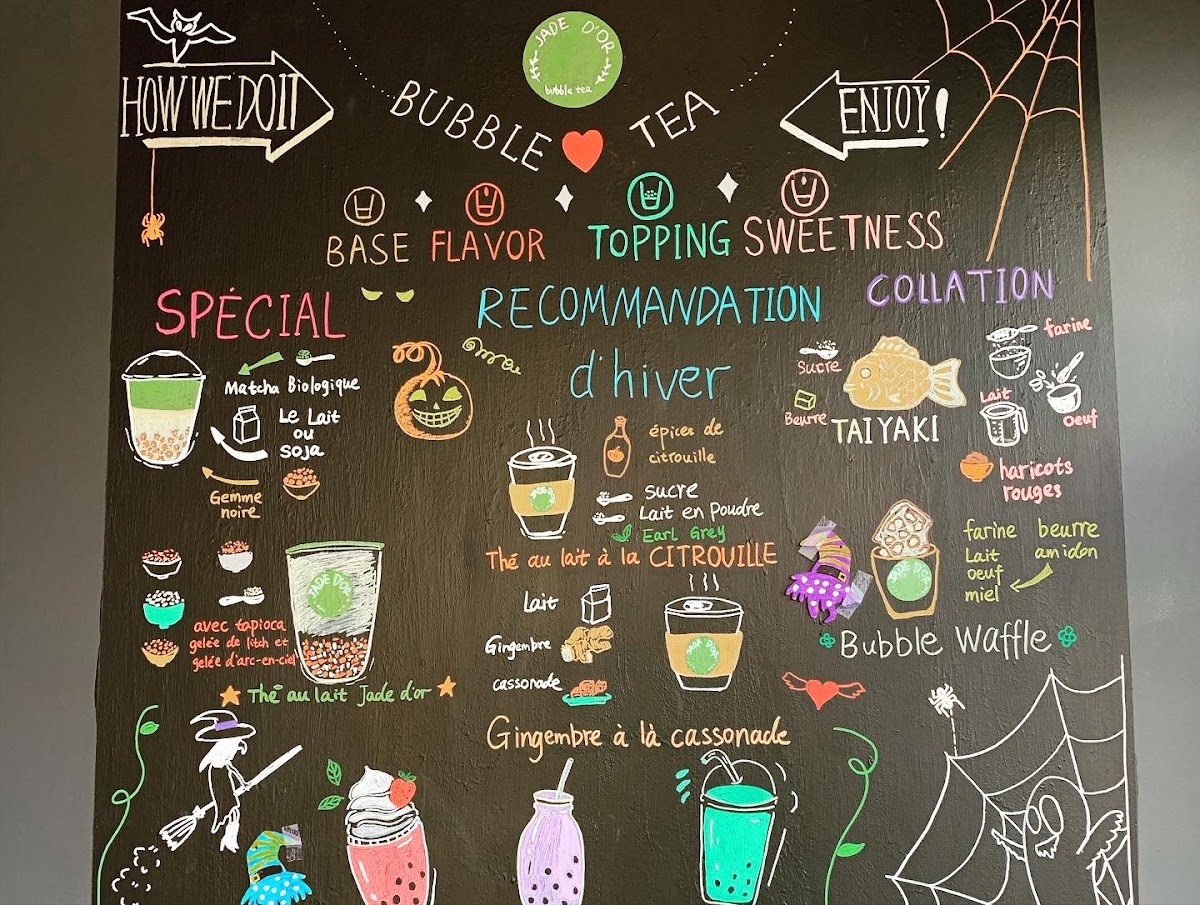 JADE D'OR
bubble tea
HOW WE DO IT
BUBBLE TEA
ENJOY!
BASE FLAVOR TOPPING SWEETNESS
SPÉCIAL
Matcha Biologique
Le Lait
ou
soja
Gemme
noire
JADE D'OR
avec tapioca
gelée de litch et
gelée d'arc-en-ciel
Thé au lait Jade d'or
RECOMMANDATION
d'hiver
épices de
citrouille
sucre
Lait en Poudre
Earl Grey
JADE D'OR
Thé au lait à la CITROUILLE
Lait
Gingembre
cassonade
JADE D'OR
Gingembre à là cassonade
COLLATION
Sucre
Beurre
farine
Lait
oeuf
TAIYAKI
haricots
rouges
JADE D'OR
farine beurre
Lait amidon
oeuf
miel
Bubble Waffle